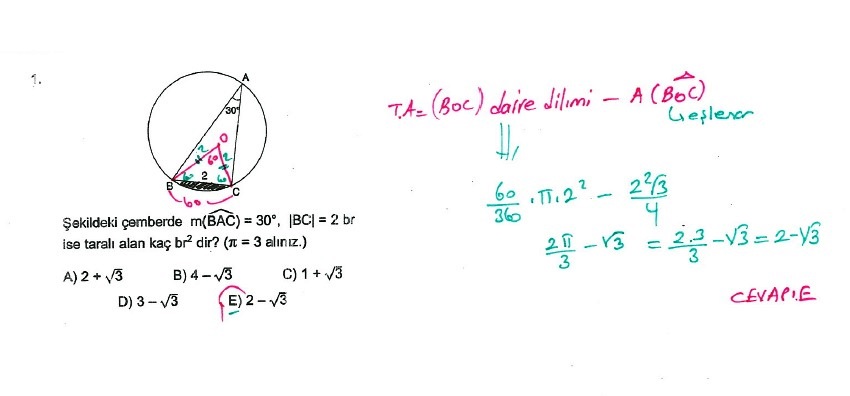 1.
A
30°
O
2
60
2
60
60
2
B
C
60
Şekildeki çemberde m(BAC) = 30°, |BC| = 2 br
ise taralı alan kaç br² dir? (π = 3 alınız.)
A) 2 + √3 B) 4 – √3 C) 1 + √3
D) 3 – √3 E) 2 – √3
T.A = (BOC) daire dilimi – A(BOC)
↳ eşkenar
60/360 . π . 2² – 2²√3/4
2π/3 – √3 = 2.3/3 – √3 = 2 – √3
CEVAP: E